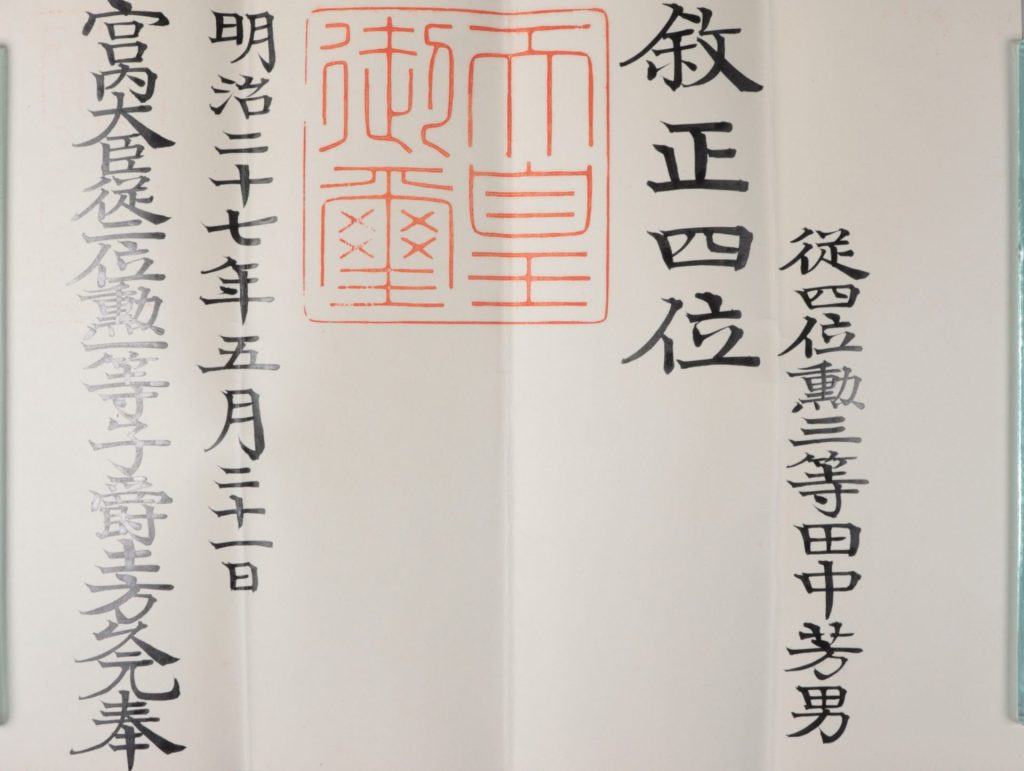 従四位勲三等田中芳男
敘正四位
天皇御璽
明治二十七年五月二十一日
宮内大臣従二位勲一等子爵土方久元奉